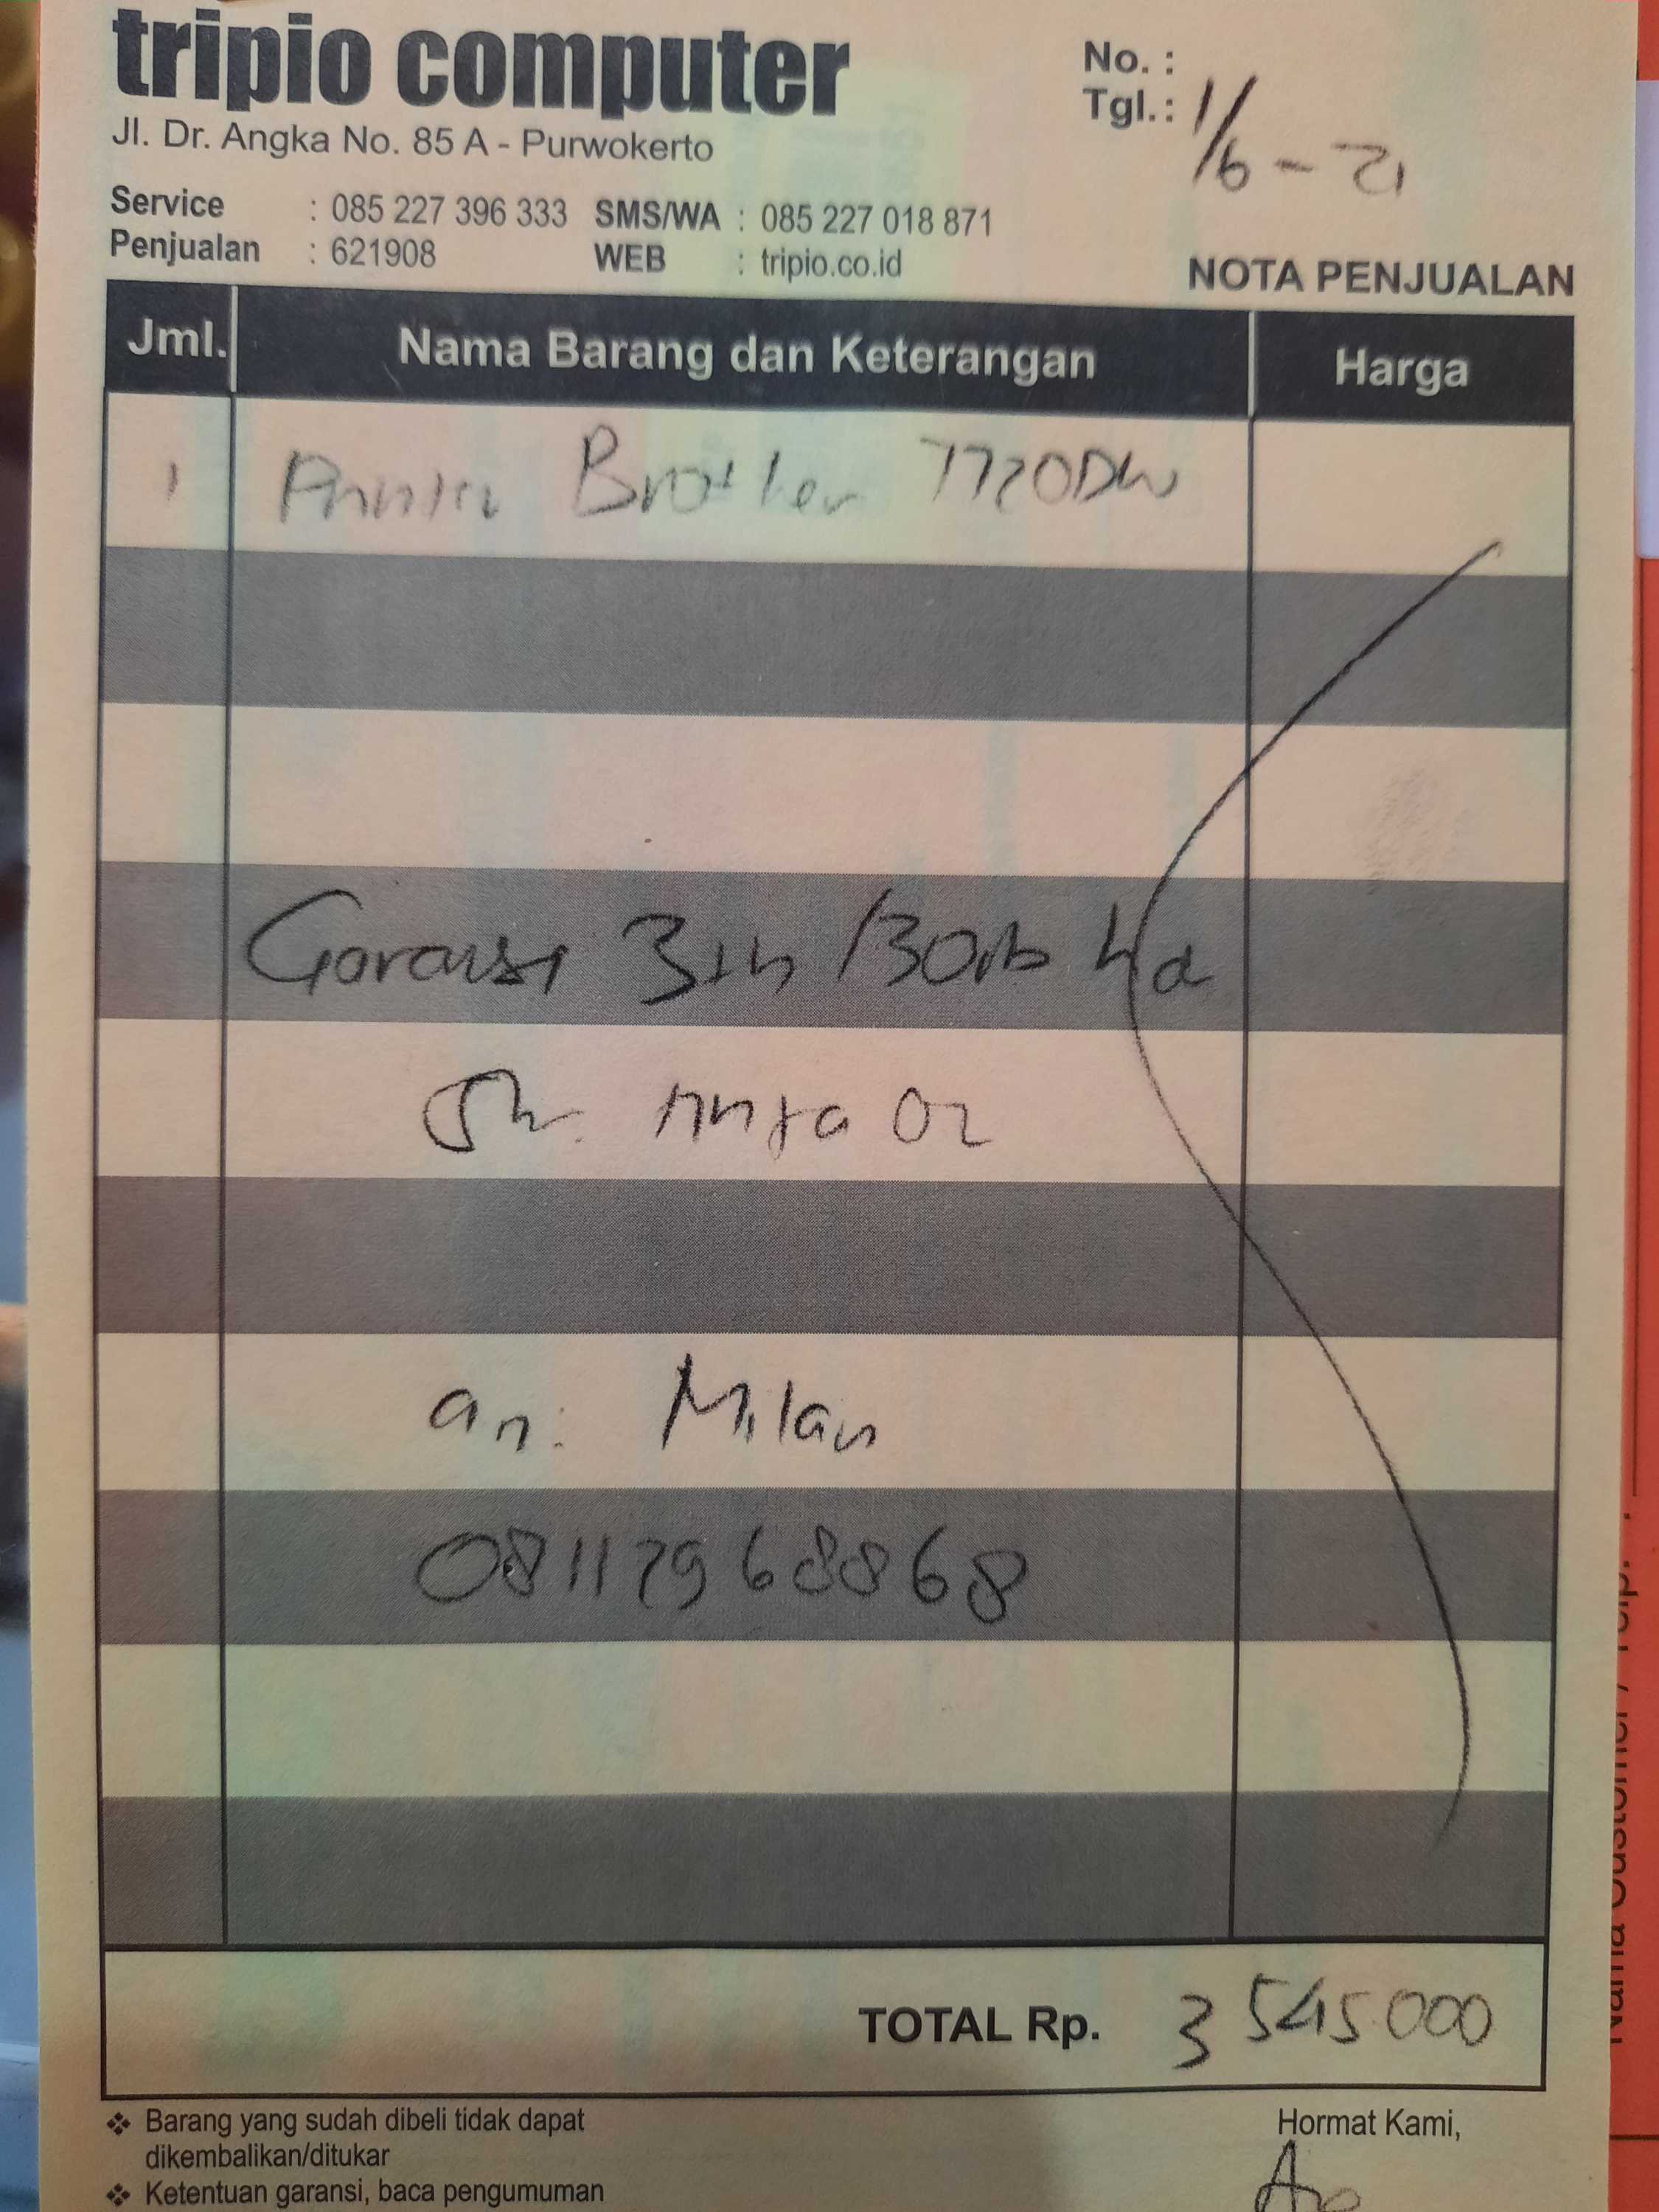 tripio computer
Jl. Dr. Angka No. 85 A - Purwokerto
Service : 085 227 396 333 SMS/WA : 085 227 018 871
Penjualan : 621908 WEB : tripio.co.id
No. :
Tgl. : 1/6 - 21
NOTA PENJUALAN
Jml. Nama Barang dan Keterangan Harga
1 Printer Brother T720DW
Garansi 3th /30rb
02
an: Milan
08112968868
TOTAL Rp. 3 545.000
Barang yang sudah dibeli tidak dapat
dikembalikan/ditukar
Ketentuan garansi, baca pengumuman
Hormat Kami,
Nama Customer / Telp. :